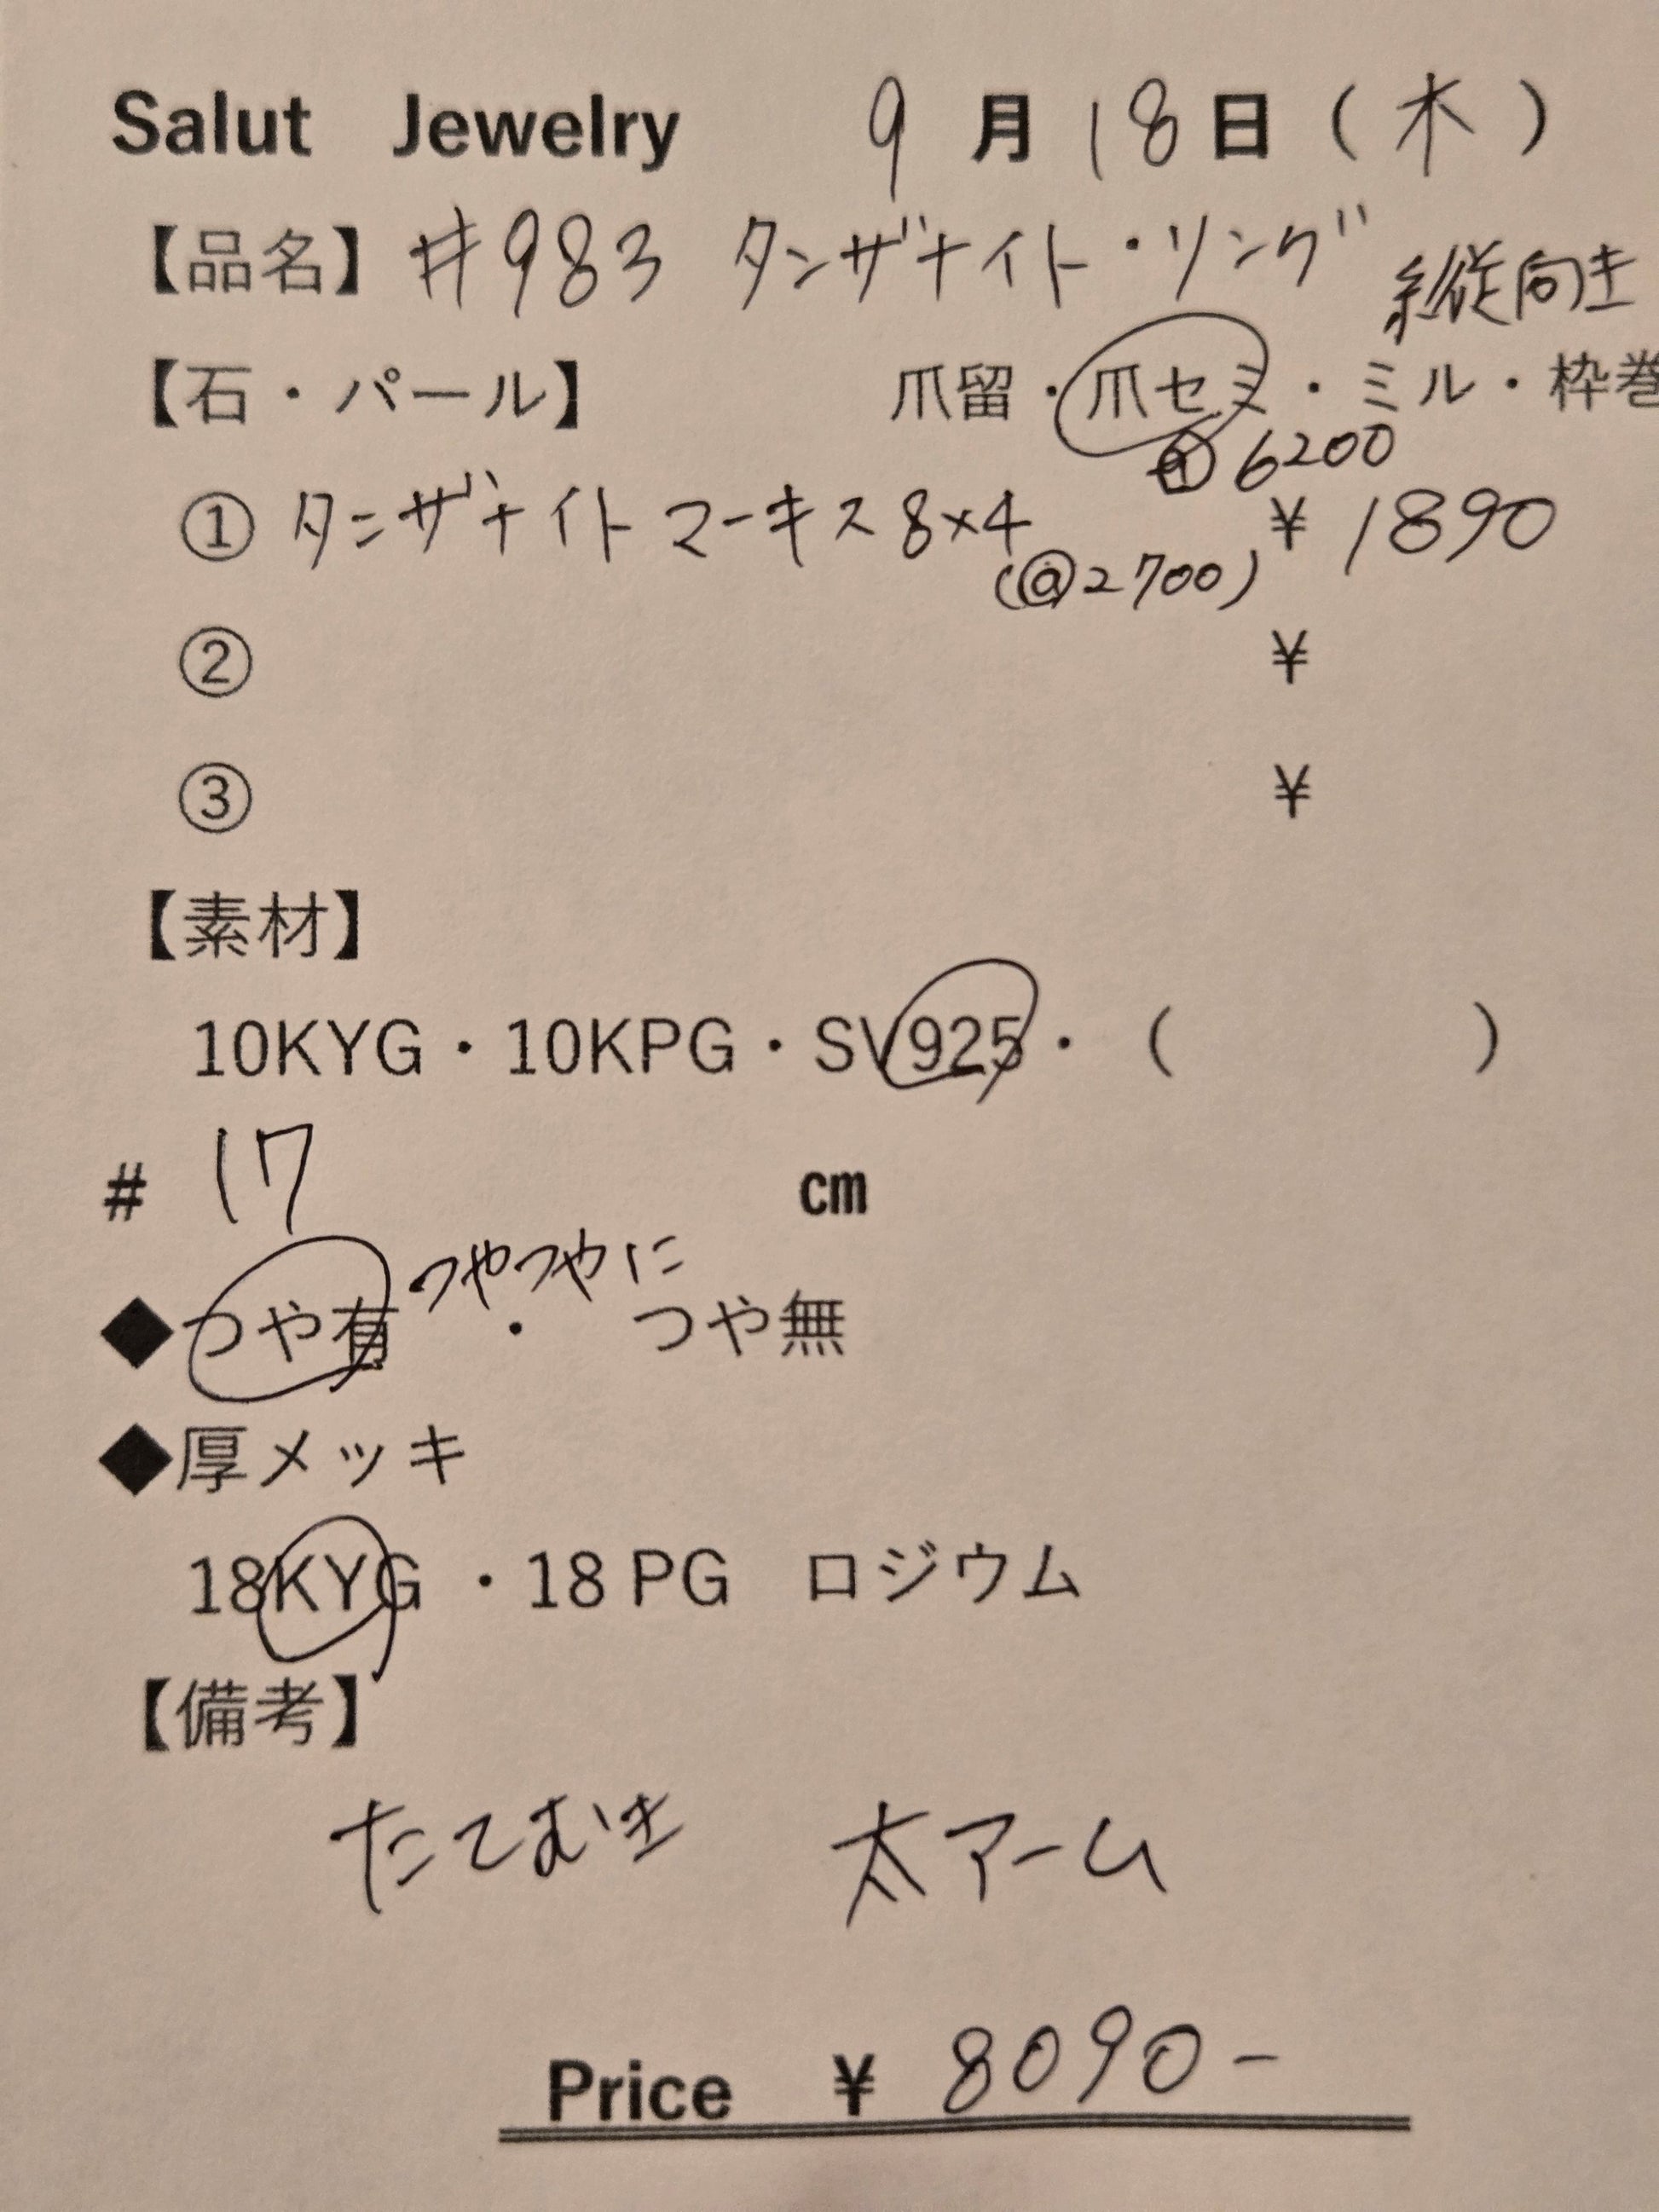 Salut Jewelry 9月18日(木)
【品名】#983 タンザナイト・リング 縦向き
【石・パール】 爪留・爪セミ・ミル・枠巻
6200
① タンザナイト マーキス 8×4 ¥1890
(@2700)
② ¥
③ ¥
【素材】
10KYG・10KPG・SV925・( )
# 17 cm
つやつやに
◆つや有・つや無
◆厚メッキ
18KYG・18PG ロジウム
【備考】
たてむき 太アーム
Price ¥ 8090-